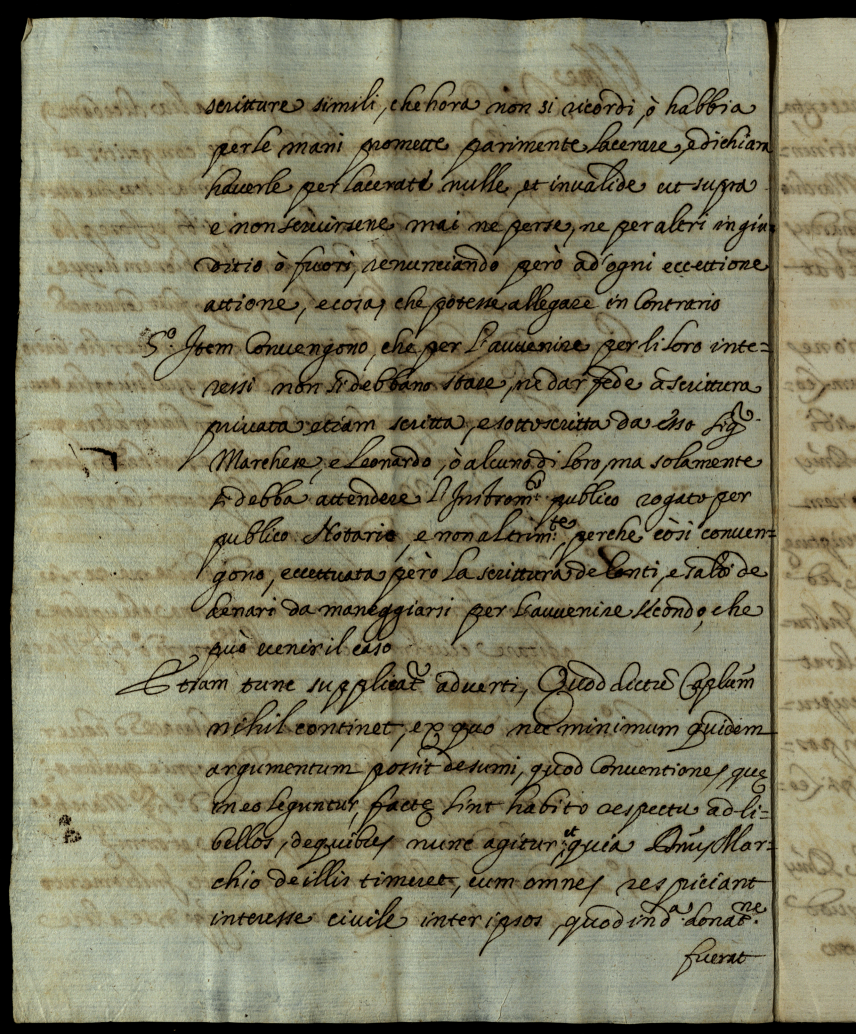 scritture simili, che hora non si ricordi, ò habbia
per le mani promette parimente lacerare, e dichiara
haverle per lacerate nulle, et invalide ut supra
e non servirsene mai ne per se, ne per altri in giu-
ditio ò fuori, renunciando però ad'ogni eccettione
attione, e cosa, che potesse allegare in Contrario
5.º Item Convengono, che per l'avvenire per li loro inte=
ressi non si debbano stare, ne dar fede à scrittura
privata etiam scritta, e sottoscritta da esso Sig.r
Marchese, e Leonardo, ò alcuno di loro, ma solamente
si debba attendere l'Instrom.to publico rogato per
publico Notario, e non altrim.te, perche così conven=
gono, eccettuata però la scrittura de Conti, e saldi de
denari da maneggiarsi per l'avvenire secondo, che
può venir il caso
Etiam tunc supplicat.r adverti, Quod dictū Caplum̄
nihil continet, ex quo nec minimum quidem
argumentum possit desumi, quod Conventiones, quę
in eo leguntur, factę sint habito respectu ad li=
bellos, de quibus nunc agitur, et quia Dnūs Mar=
chio de illis timeret, cum omnes respiciant
interesse civile inter ipsos, quod in d.a donat.ne
fuerat